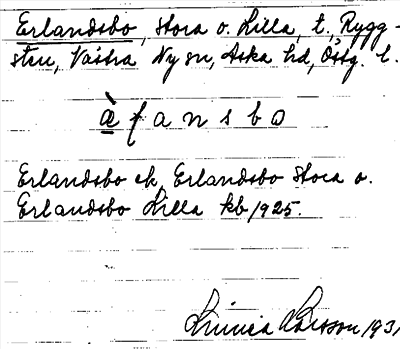 Erlandsbo, Stora o. Lilla, t. Rygg-
sten, Västra Ny sn, Aska hd, Östg. l.
æ̀ f a n s b o
Erlandsbo ek, Erlandsbo Stora o.
Erlandsbo Lilla kb 1925.
Linnea Larsson 1931